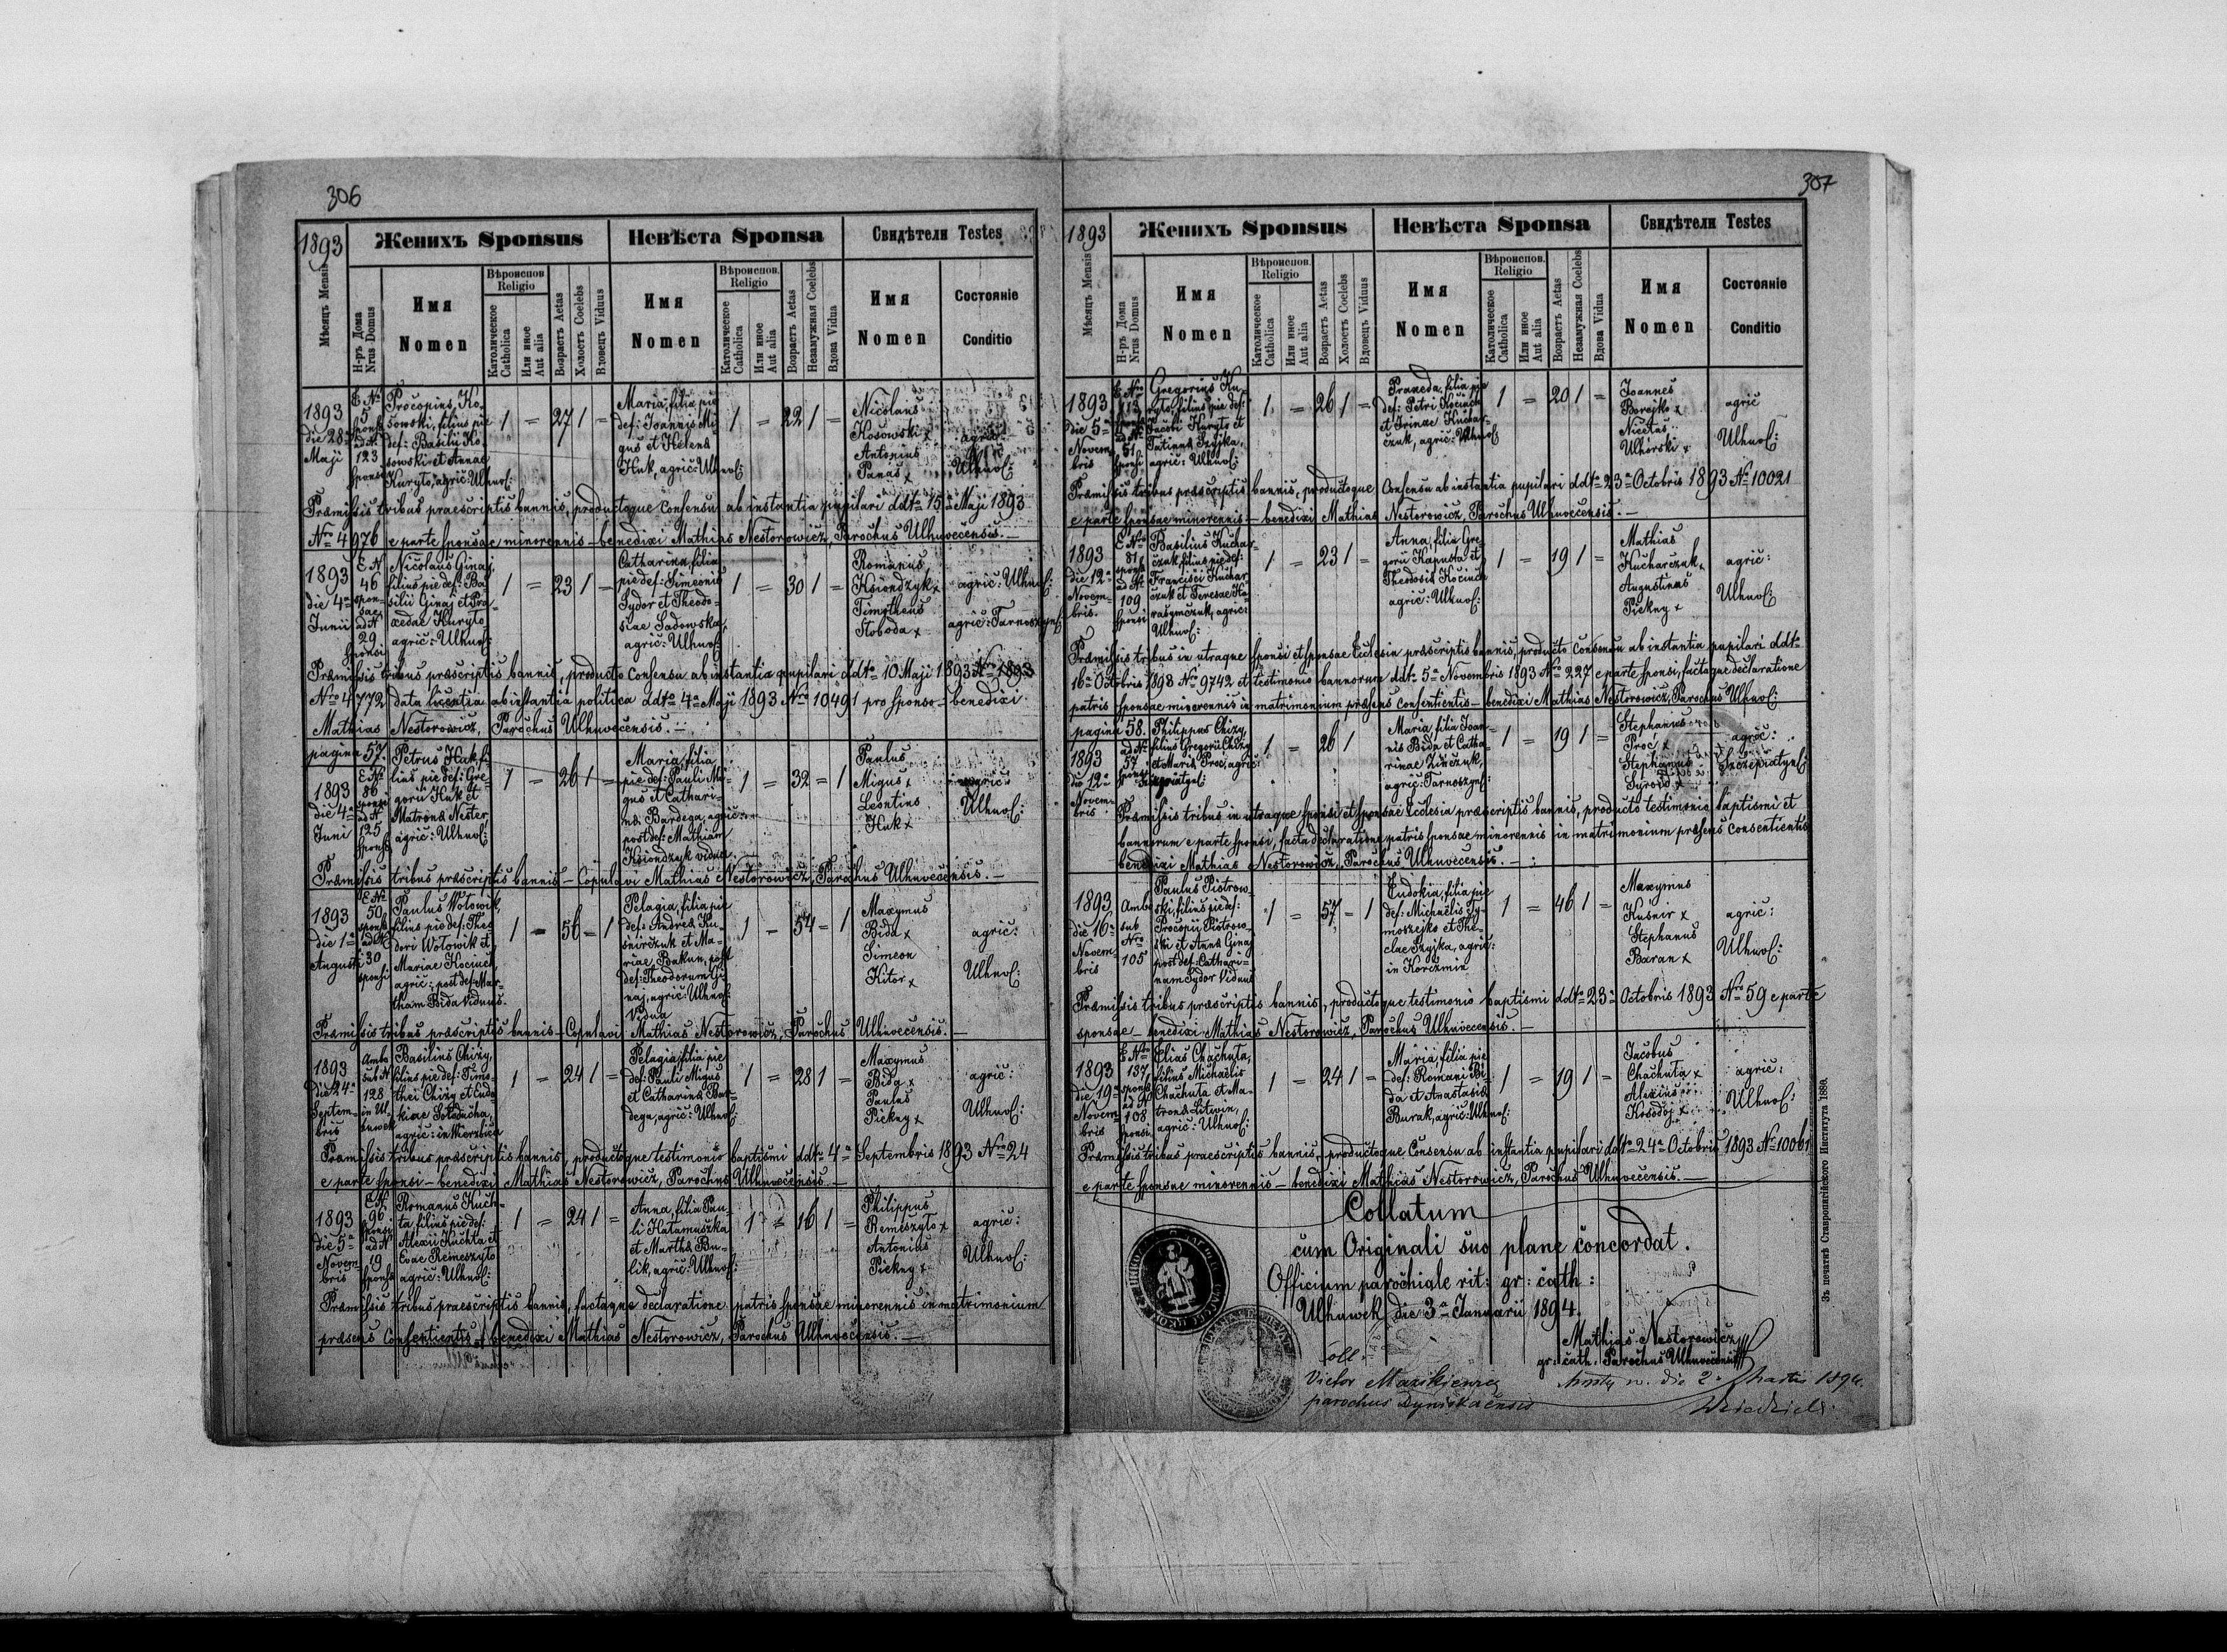 306
1893
Женихъ Sponsus
Невѣста Sponsa
Свидѣтели Testes
Мѣсяцъ Mensis
Н-ръ Дома
Nrus Domus
Имя
Nomen
Вѣроиспов.
Religio
Католическое
Catholica
Или иное
Aut alia
Возрастъ Aetas
Холостъ Coelebs
Вдовецъ Viduus
Имя
Nomen
Вѣроиспов.
Religio
Католическое
Catholica
Или иное
Aut alia
Возрастъ Aetas
Незамужная Coelebs
Вдова Vidua
Имя
Nomen
Состояніе
Conditio
1893
die 28a
Maji
E No
5
sponsae
ad N
123
sponsi
Procopius Ko-
sowski, filius pie
def: Basilii Ko-
sowski et Annae
Kuryło, agric: Ulhnof:
1 = 27 1 =
Maria, filia pie
def: Joannis Mi-
gus et Helena
Huk, agric: Ulhnof:
1 = 22 1 =
Nicolaus
Kosowski x
Antonius
Panas x
agric:
Ulhnof:
Præmissis tribus praescriptis bannis, productoque Consensu ab instantia pupilari ddto 15a Maji 1893
Nro 4976 e parte sponsae minorennis – benedixi Mathias Nestorowicz, Parochus Ulhnvecensis. –
1893
die 4a
Junii
E N
46
spon-
sae
ad N
29
sponsi
Nicolaus Ginaj,
filius pie def: Ba-
silii Ginaj et Pra-
xedae Kuryło
agric: Ulhnof:
1 = 23 1 =
Catharina, filia
pie def: Simeonis
Sydor et Theodo-
siae Sadowska,
agric: Ulhnof:
1 = 30 1 =
Romanus
Ksiondzyk x
Timotheus
Słoboda x
agric: Ulhnof:
agric: Tarnoszynf:
Præmissis tribus præscriptis bannis, producto Consensu ab instantia pupilari ddto 10 Maji 1893 Nro 1893
No 4772 data licentia ab instantia politica ddto 4a Maji 1893 Nro 10491 pro sponso – benedixi
Mathias Nestorowicz, Parochus Ulhnvecensis. –
pagina 57.
1893
die 4a
Juni
E No
86
sponsi
ad N
125
sponsae
Petrus Huk, fi-
lius pie def: Gre-
gorii Huk et
Matrona Nester,
agric: Ulhnof:
1 = 26 1 =
Maria, filia
pie def: Pauli Mi-
gus et Cathari-
na Bardega, agric:
post def: Mathiam
Ksiondzyk vidua
1 = 32 = 1
Paulus
Migus x
Leontius
Huk x
agric:
Ulhnof:
Præmissis tribus præscriptis bannis – Copulavi Mathias Nestorowicz, Parochus Ulhnvecensis. –
1893
die 1a
Augusti
E No
50
sponsae
ad N
30
sponsi
Paulus Wołowik,
filius pie def: Theo-
dori Wołowik et
Mariae Kociuch,
agric: post def: Mar-
tham Bida viduus.
1 = 56 = 1
Pelagia, filia pie
def: Andrea Ku-
snirczuk et Ma-
riae Bakun, post
def: Theodorum Gi-
naj, agric: Ulhnof:
Vidua
1 = 54 = 1
Maxymus
Bida x
Simeon
Kitor x
agric:
Ulhnof:
Præmissis tribus præscriptis bannis – Copulavi Mathias Nestorowicz, Parochus Ulhnvecensis. –
1893
die 24a
Septem-
bris
Ambo
sub N
128
in Ul-
huwek
Basilius Chizy,
filius pie def: Timo-
thei Chizy et Eudo-
kiae Soładucha,
agric: in Wierzbica
1 = 24 1 =
Pelagia, filia pie
def: Pauli Migus
et Catharina Bar-
dega, agric: Ulhnof:
1 = 28 1 =
Maxymus
Bida x
Paulus
Piekny x
agric:
Ulhnof:
Præmissis tribus præscriptis bannis, productoque testimonio baptismi ddto 4a Septembris 1893 Nro 24
e parte sponsi – benedixi Mathias Nestorowicz, Parochus Ulhnvecensis –
1893
die 5a
Novem-
bris
E N
96
sponsi
ad N
19
sponsae
Romanus Kuch-
ta, filius pie def:
Alexii Kuchta et
Evae Remeszyło
agric: Ulhnof:
1 = 24 1 =
Anna, filia Pau-
li Katamuszka
et Martha Bu-
lik, agric: Ulhnof:
1 = 16 1 =
Philippus
Remeszyło x
Antonius
Piekny x
agric:
Ulhnof:
Præmissis tribus praescriptis bannis, factaque declaratione patris sponsae minorennis in matrimonium
præsens Consentientis – benedixi Mathias Nestorowicz, Parochus Ulhnvecensis. –
307
1893
Женихъ Sponsus
Невѣста Sponsa
Свидѣтели Testes
Мѣсяцъ Mensis
Н-ръ Дома
Nrus Domus
Имя
Nomen
Вѣроиспов.
Religio
Католическое
Catholica
Или иное
Aut alia
Возрастъ Aetas
Холостъ Coelebs
Вдовецъ Viduus
Имя
Nomen
Вѣроиспов.
Religio
Католическое
Catholica
Или иное
Aut alia
Возрастъ Aetas
Незамужная Coelebs
Вдова Vidua
Имя
Nomen
Состояніе
Conditio
1893
die 5a
Novem-
bris
E Nro
113
ad N
61
sponsi
Gregorius Ku-
ryło, filius pie def:
Jacobi Kuryło et
Tatianna Szyjka,
agric: Ulhnof:
1 = 26 1 =
Praxeda, filia pie
def: Petri Kociuch
et Irinae Kuchar-
czuk, agric: Ulhnof:
1 = 20 1 =
Joannes
Borejko x
Nicetas
Ulhorski x
agric
Ulhnof:
Præmissis tribus præscriptis bannis, productoque Consensu ab instantia pupilari ddto 23a Octobris 1893 No 10021
e parte sponsae minorennis – benedixi Mathias Nestorowicz, Parochus Ulhnvecensis. –
1893
die 12a
Novem-
bris.
E Nro
81
sponsae
ad N
109
sponsi
Basilius Kuchar-
czuk, filius pie def:
Francisci Kuchar-
czuk et Teresae Ha-
rasymczuk, agric:
Ulhnof:
1 = 23 1 =
Anna, filia Gre-
gorii Kapusta et
Theodosia Kociuch
agric: Ulhnof:
1 = 19 1 =
Mathias
Kucharczuk x
Augustinus
Piekny x
agric:
Ulhnof:
Præmissis tribus in utraque sponsi et sponsae Ecclesia præscriptis bannis, producto Consensu ab instantia pupilari ddto
16a Octobris 1893 No 9742 et testimonio bannorum ddto 5a Novembris 1893 No 227 e parte sponsi, factaque declaratione
patris sponsae minorennis in matrimonium præsens Consentientis – benedixi Mathias Nestorowicz, Parochus Ulhnof:
pagina 58.
1893
die 12a
Novem-
bris
ad N
57
sponsi
Philippus Chizy,
filius Gregorii Chizy
et Maria Proć, agric:
1 = 26 1
Maria, filia Joan-
nis Bida et Catha-
rinae Zinczuk,
agric: Tarnoszynf:
1 = 19 1 =
Stephanus
Proć x
Stephanus
Syroid x
agric:
Szczepiatynf:
Præmissis tribus in utraque sponsi et sponsae Ecclesia præscriptis bannis, producto testimonio baptismi et
bannorum e parte sponsi, facta declaratione patris sponsae minorennis in matrimonium præsens Consentientis
benedixi Mathias Nestorowicz, Parochus Ulhnvecensis. –
1893
die 16a
Novem-
bris
Ambo
sub
Nro
105
Paulus Piotrow-
ski, filius pie def:
Procopii Piotrow-
ski et Anna Ginaj
post def: Cathari-
nam Sydor Viduus
1 = 57 = 1
Eudokia, filia pie
def: Michaelis Ty-
moszejko et The-
clae Szyjka, agric:
in Korczmin
1 = 46 1 =
Maxymus
Kusnir x
Stephanus
Baran x
agric:
Ulhnof:
Præmissis tribus præscriptis bannis, productoque testimonio baptismi ddto 23a Octobris 1893 Nro 59 e parte
sponsae – benedixi Mathias Nestorowicz, Parochus Ulhnvecensis. –
1893
die 19a
Novem-
bris
E Nro
137
sponsae
ad N
108
sponsi
Elias Chachuta,
filius Michaelis
Chachuta et Ma-
trona Litwin,
agric: Ulhnof:
1 = 24 1 =
Maria, filia pie
def: Romani Bi-
da et Anastasia
Burak, agric: Ulhnof:
1 = 19 1 =
Jacobus
Chachuta x
Alexius
Kosodoj x
agric:
Ulhnof:
Præmissis tribus praescriptis bannis, productoque Consensu ab instantia pupilari ddto 24a Octobris 1893 No 10061
e parte sponsae minorennis – benedixi Mathias Nestorowicz, Parochus Ulhnvecensis. –
Collatum
cum Originali suo plane concordat.
Officium parochiale rit: gr: cath:
Ulhnwek die 3a Januarii 1894.
Mathias Nestorowicz
gr: cath. Parochus Ulhnvecensis
Coll.
Victor Mazikiewicz
parochus Dyniskacensis
die 2 Martii 1894.
Зъ печатнѣ Ставропигійского Института 1880.